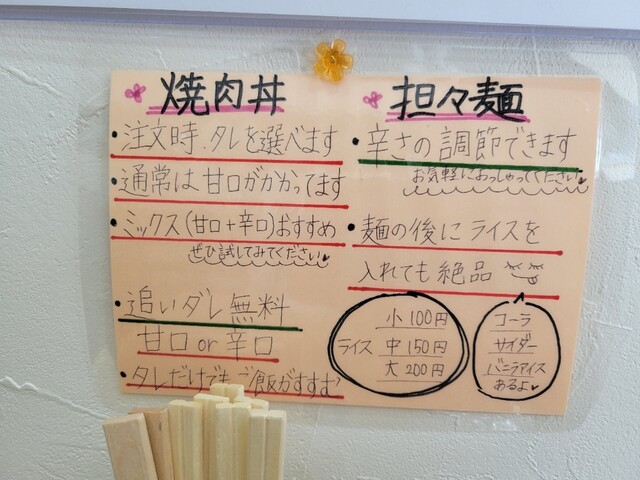 焼肉丼
・注文時、タレを選べます
・通常は甘口がかかってます
・ミックス(甘口+辛口)おすすめ
ぜひ試してみてください♥
・追いダレ無料
甘口 or 辛口
・タレだけでもご飯がすすむ
担々麺
・辛さの調節できます
お気軽におっしゃってください♥
・麺の後にライスを
入れても絶品
ライス
小 100円
中 150円
大 200円
コーラ
サイダー
バニラアイス
あるよ♥